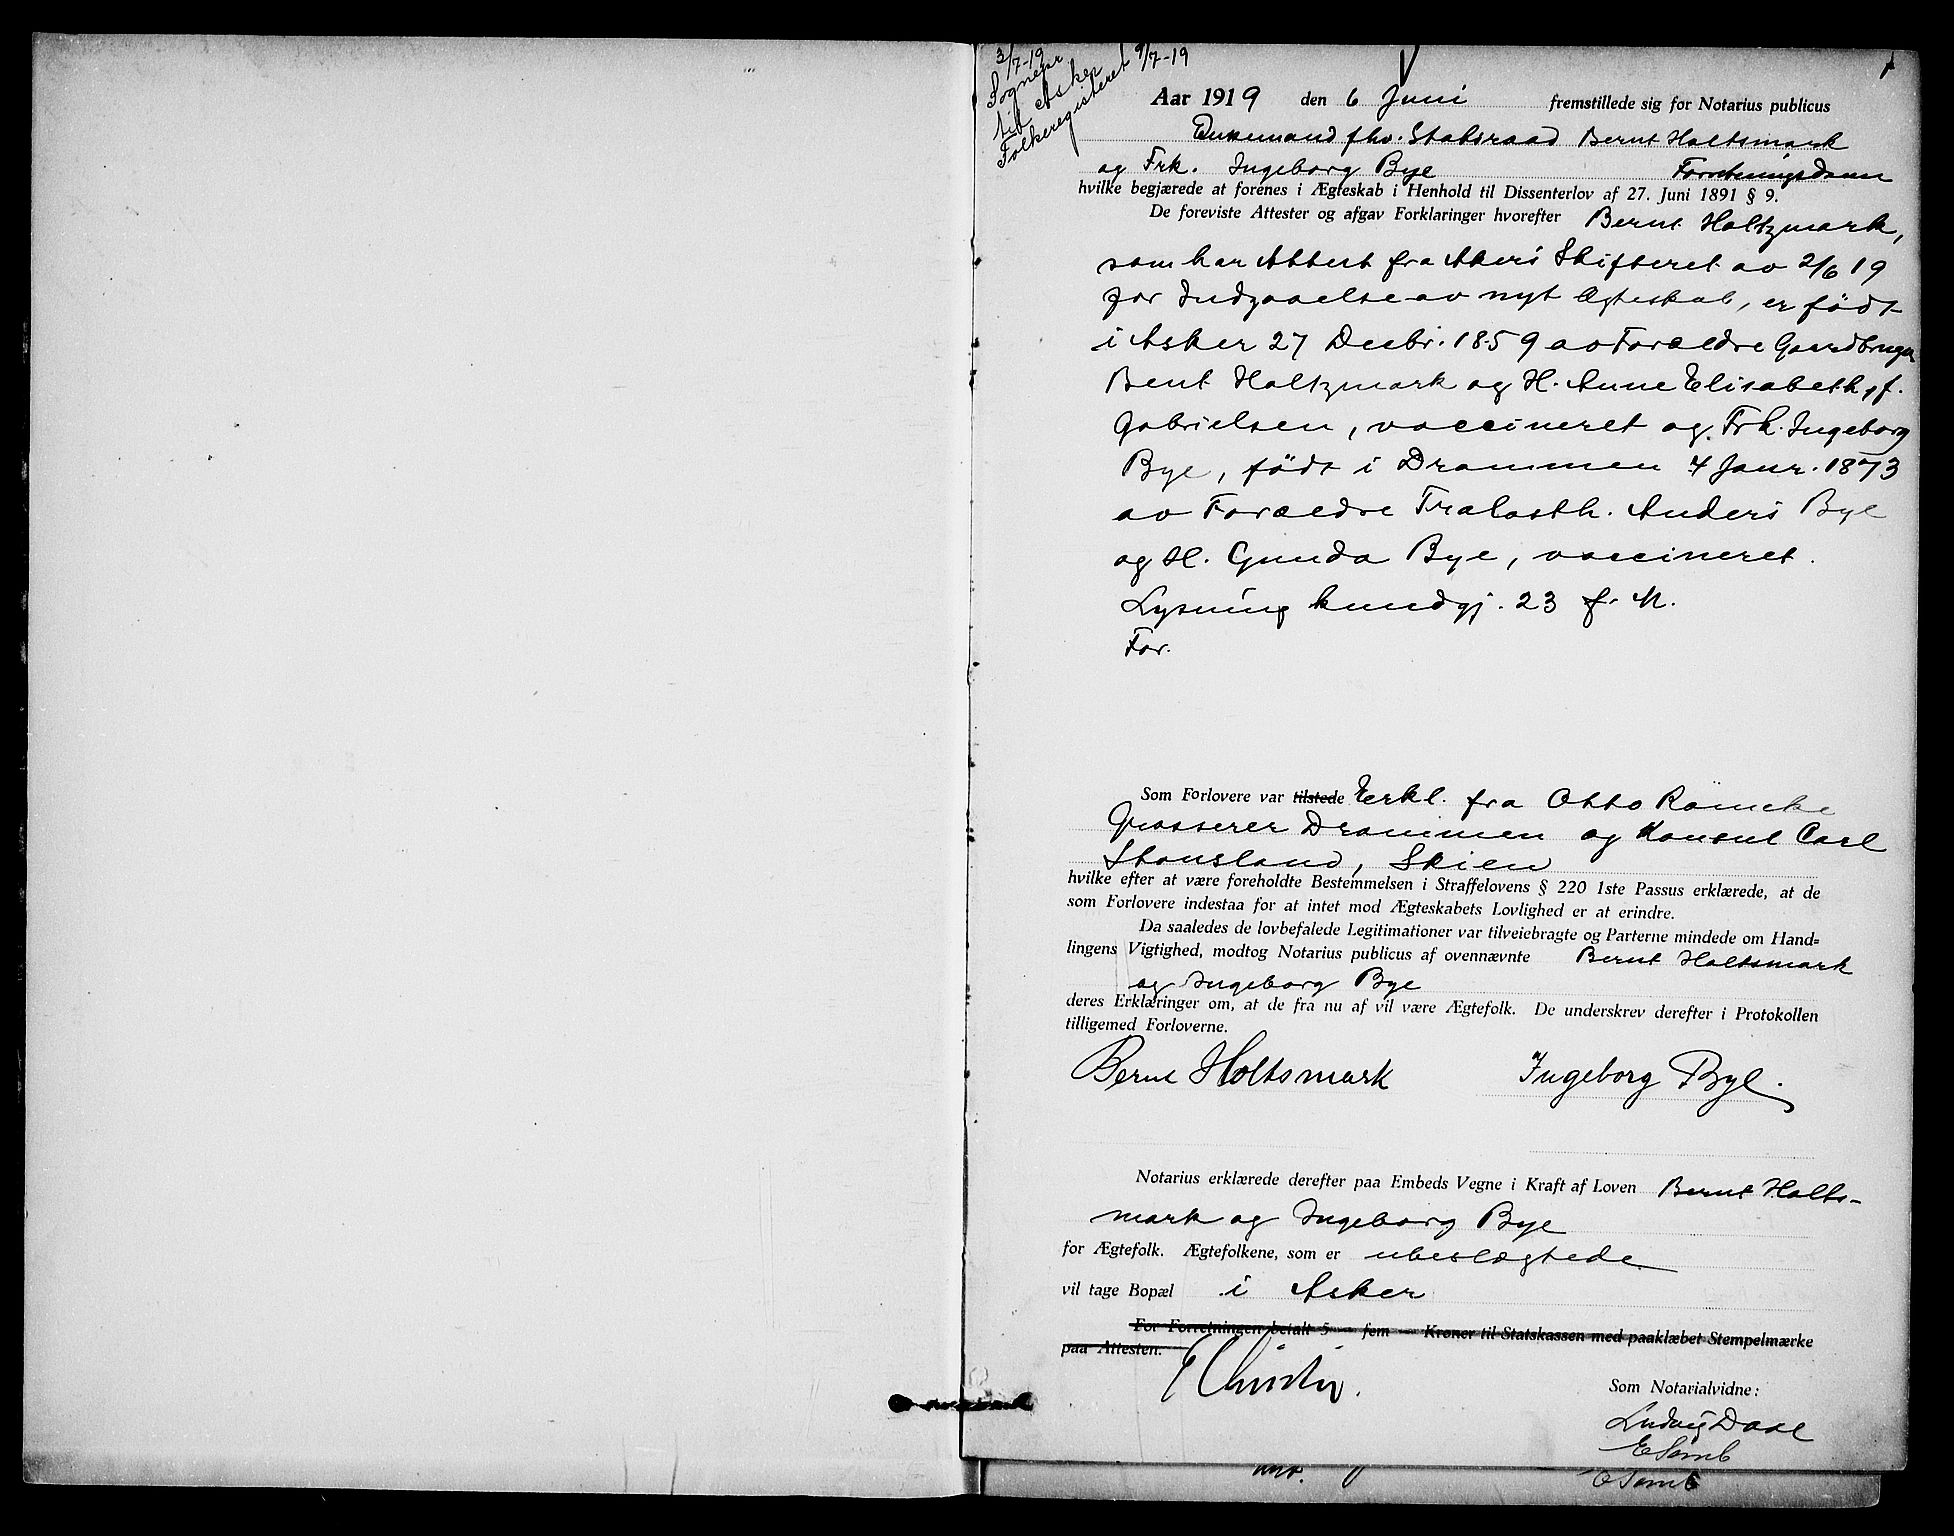 3/7-19
Sognepr
til Asker
Folkeregisteret 9/7-19
Aar 1919 den 6 Juni fremstillede sig for Notarius publicus
Enkemand fhv. Statsraad Bernt Holtsmark
og Frk. Ingeborg Bye Forretningsdame
hvilke begjærede at forenes i Ægteskab i Henhold til Dissenterlov af 27. Juni 1891 § 9.
De foreviste Attester og afgav Forklaringer hvorefter Bernt Holtzmark,
som har Attest fra Akers Skifteret av 2/6 19
for Indgaaelse av nyt Ægteskab, er født
i Asker 27 Decbr. 1859 av Forældre Gaardbruger
Bent Holtzmark og H. Anne Elisabeth, f.
Gabrielsen, vaccineret og Frk. Ingeborg
Bye, født i Drammen 4 Janr. 1873
av Forældre Tralasth. Anders Bye
og H. Gunda Bye, vaccineret.
Lysning kundgj. 23 f. M.
For.
Som Forlovere var tilstede Erkl. fra Otto Römcke
Grosserer Drammen og Konsul Carl
Stousland, Skien
hvilke efter at være foreholdte Bestemmelsen i Straffelovens § 220 1ste Passus erklærede, at de
som Forlovere indestaa for at intet mod Ægteskabets Lovlighed er at erindre.
Da saaledes de lovbefalede Legitimationer var tilveiebragte og Parterne mindede om Hand=
lingens Vigtighed, modtog Notarius publicus af ovennævnte Bernt Holtsmark
og Ingeborg Bye
deres Erklæringer om, at de fra nu af vil være Ægtefolk. De underskrev derefter i Protokollen
tilligemed Forloverne.
Bernt Holtsmark Ingeborg Bye.
Notarius erklærede derefter paa Embeds Vegne i Kraft af Loven Bernt Holts-
mark og Ingeborg Bye
for Ægtefolk. Ægtefolkene, som er ubeslægtede
vil tage Bopæl i Asker
For Forretningen betalt 5 — fem — Kroner til Statskassen med paaklæbet Stempelmærke
paa Attesten.
E Christie.
Som Notarialvidne:
Ludvig Daae
E Somb
E Somb